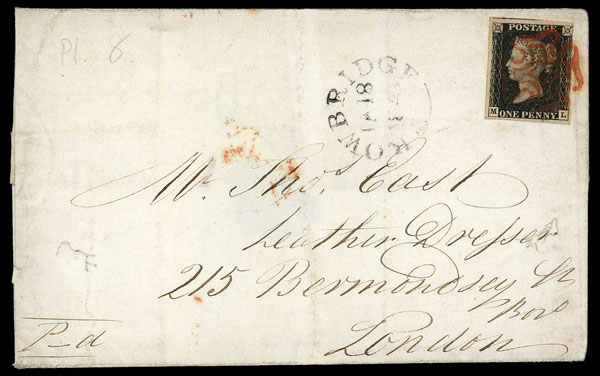 Pl. 6.
POSTAGE
M L
ONE PENNY.
TROWBRIDGE
Mr. Thos. East
Leather Dresser
215 Bermondsey St
Boro
London
P-d